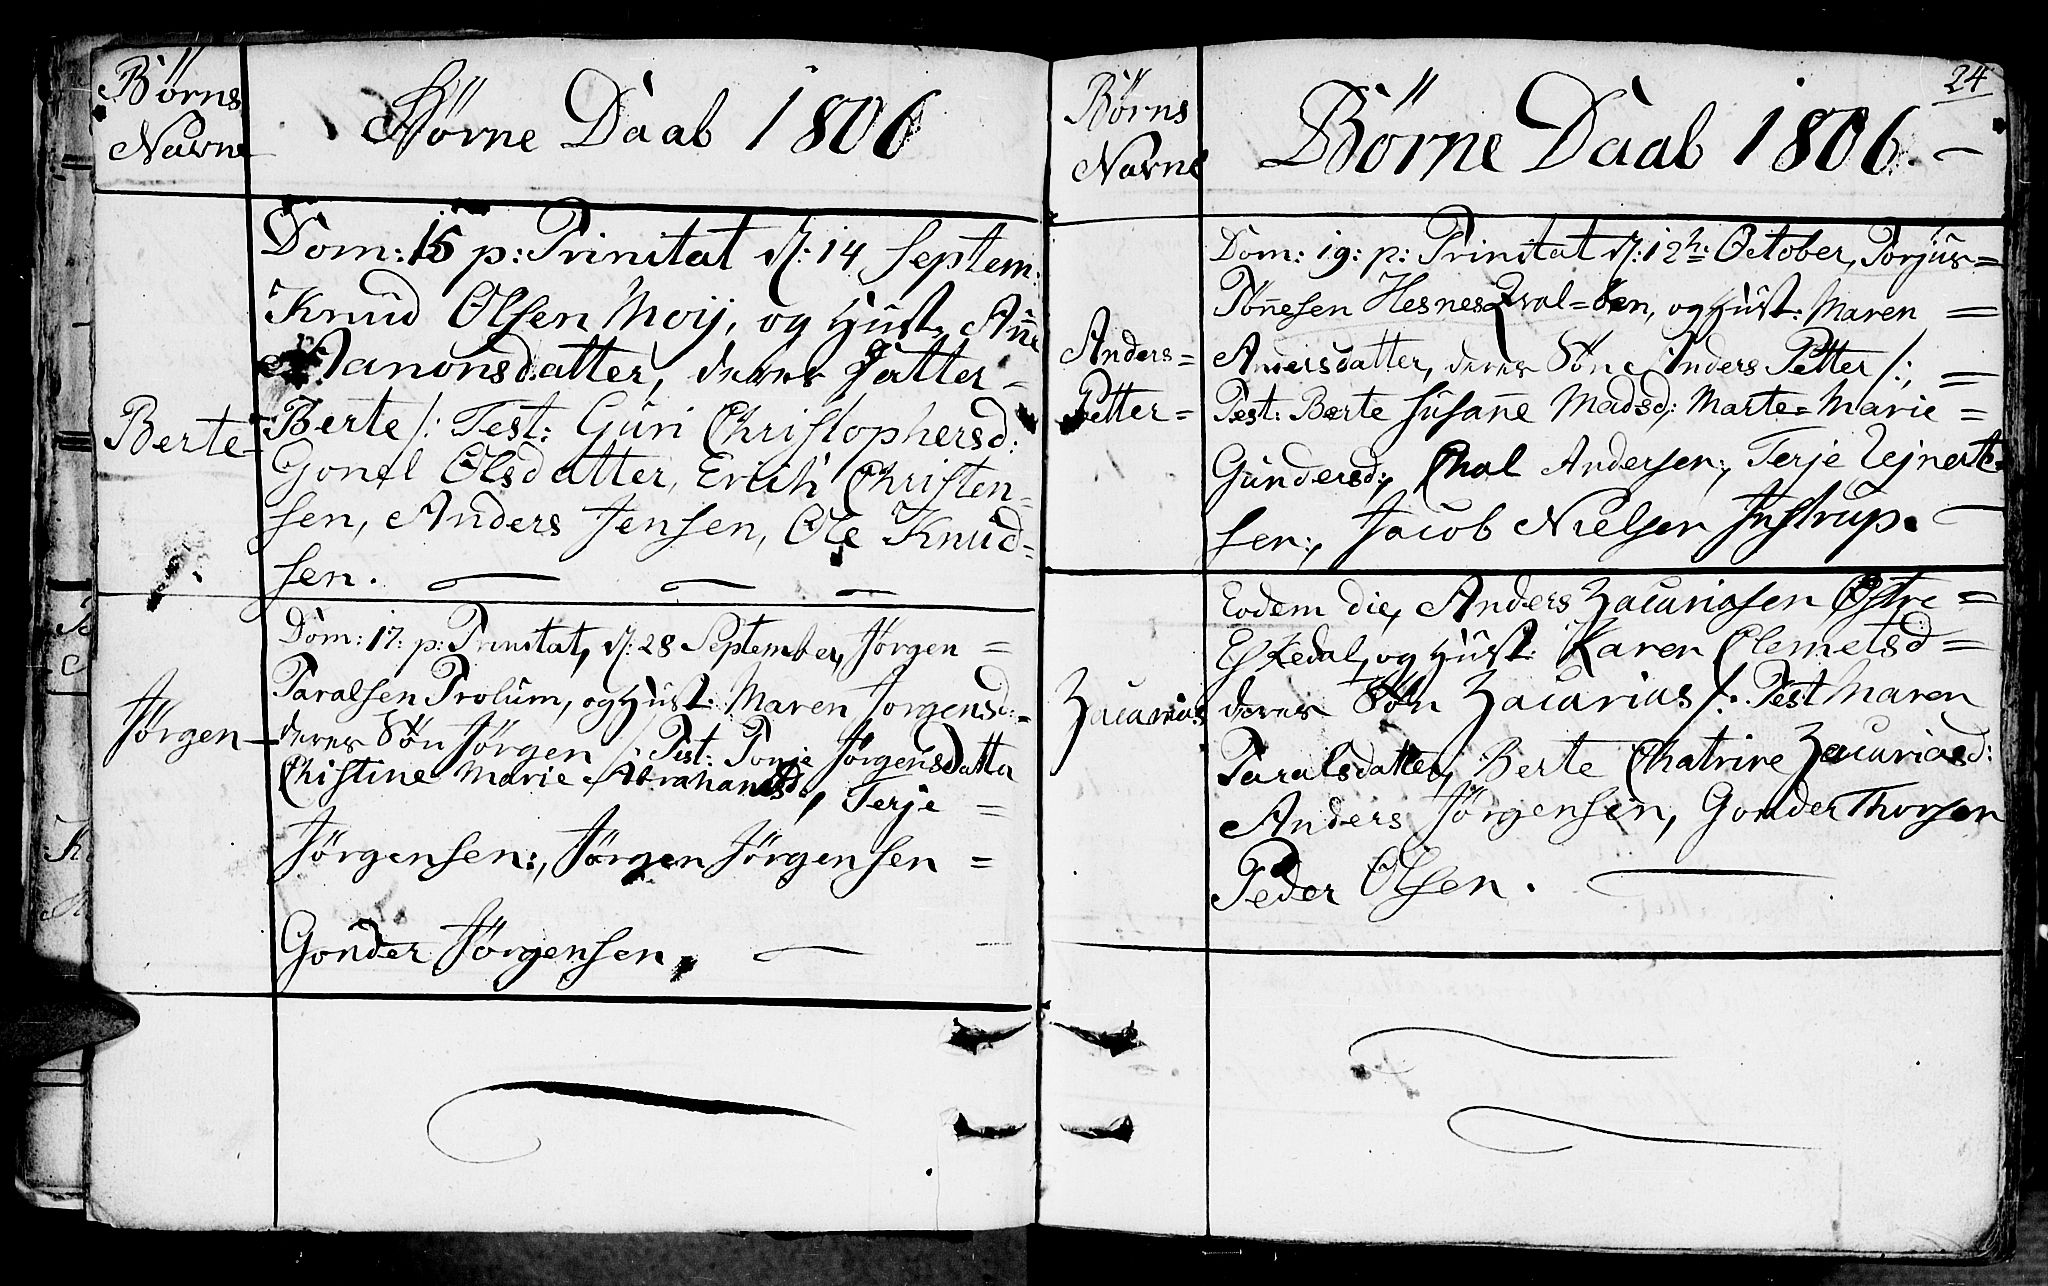 Børns
Navne
Børne Daab 1806
Dom: 15 p: Trinitat d: 14 Septem:
Knud Olsen Moÿ, og Hust: Añe
Aanonsdatter, deres Datter-
Berte-
Berte /: Test: Guri Christophersd:
Gonel Olsdatter, Erich Christen-
sen, Anders Jensen, Ole Knud-
sen.
Dom: 17: p: Trinitat, d: 28 September, Jørgen =
Taralsen Trolum, og Hust: Maren Jørgensd:=
Jørgen-
deres Søn Jørgen /: Test: Tonje Jørgensdatter
Christine Marie Abrahamsd:, Terje =
Jørgensen:, Jørgen Jørgensen =
Gonder Jørgensen,
24
Børns
Navne
Børne Daab 1806.
Dom: 19: p: Trinitat d: 12te October, Torjus=
Tøñesen Hesnes, og Hust: Maren =
Anders=
Petter=
Andersdatter, deres Søn Anders Petter /:, =
Test: Berte Susañe Madsd: Marte= Marie =
Gundersd:, Andersen:, Terje Rejnert-
sen:, Jacob Nielsen Instrup.
Eodem die, Anders Zacariasen Østre =
Eskedal, og Hust: Karen Clemetsd =
Zacarias
deres Søn Zacarias /:. Test Maren
Taralsdatter, Berte Chatrine Zacariasd:
Anders Jørgensen, Gonder Thorsen
Peder Olsen.